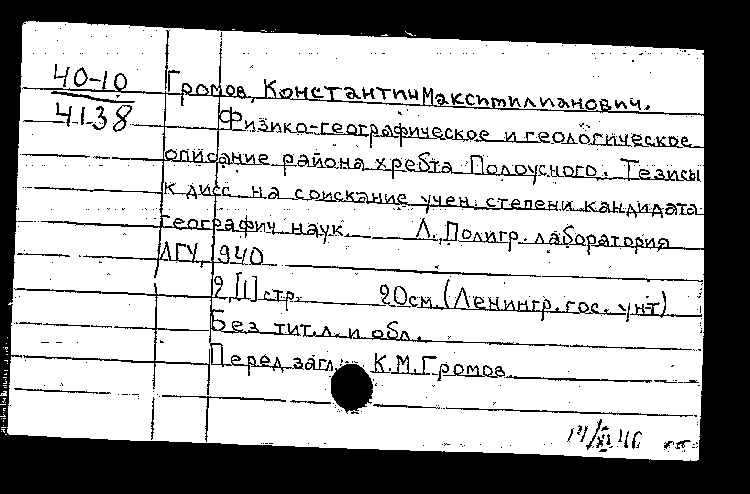 40-10
4138
Громов, Константин Максимилианович.
Физико-географическое и геологическое
описание района хребта Полоусного. Тезисы
к дисс. на соискание учен. степени кандидата
географич наук Л., Полигр. лаборатория
ЛГУ, 1940
2, [1] стр. 20см. (Ленингр. гос. унт)
Без тит. л. и обл.
Перед загл.: К.М. Громов.